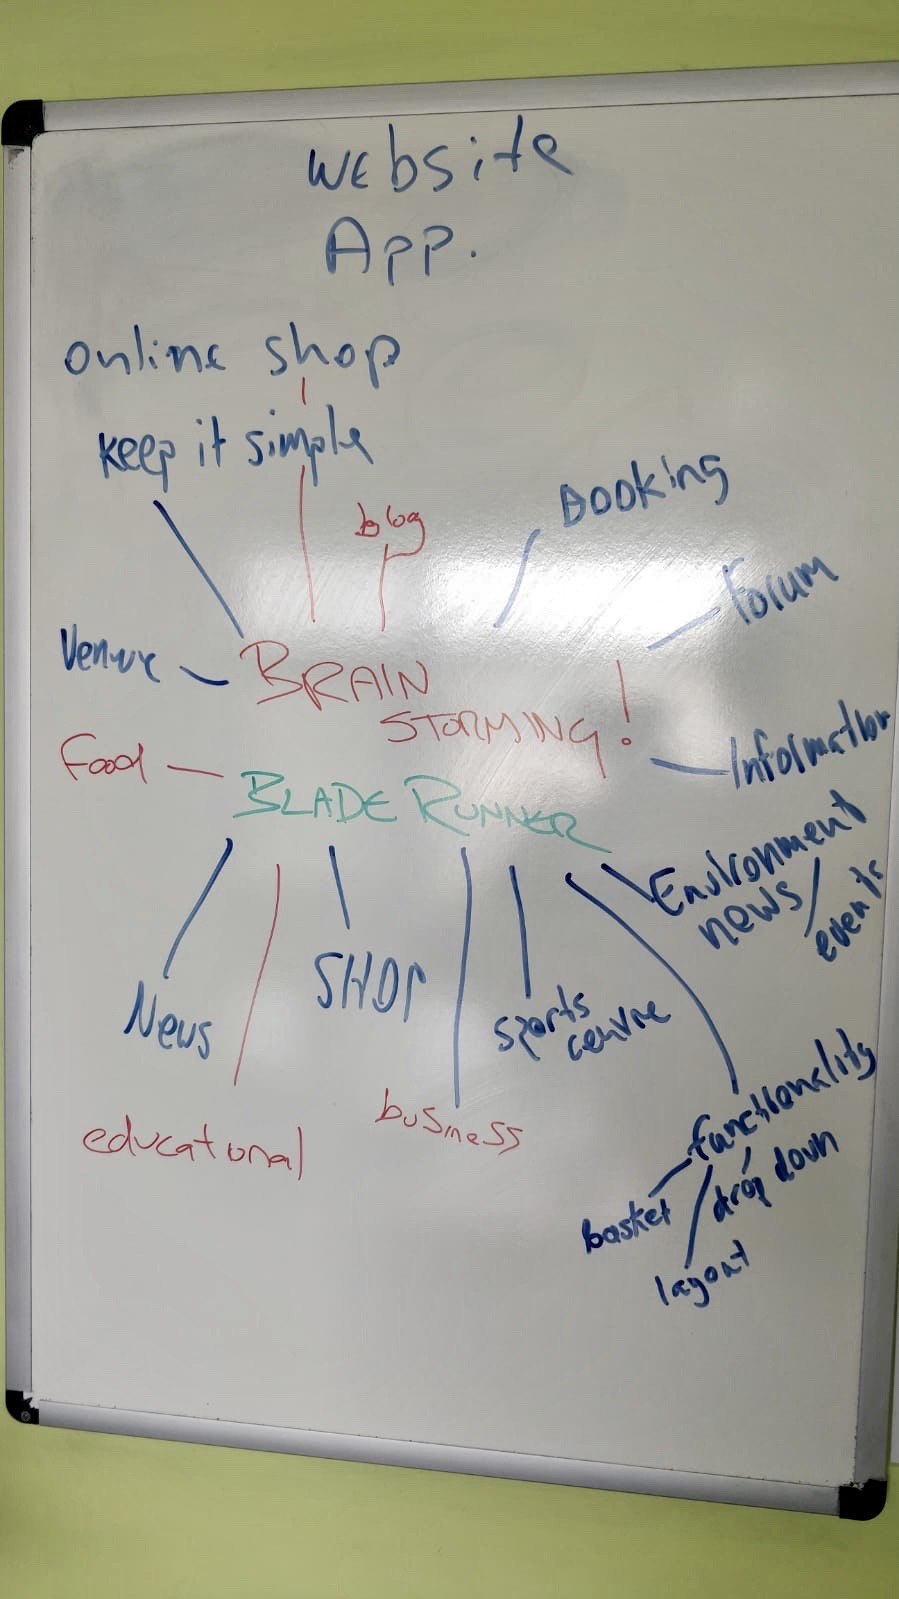 website
App.
online shop
keep it simple
blog
Booking
Forum
Venue
BRAIN
STORMING!
Food
Information
BLADE RUNNER
Environment
news / events
News
SHOP
sports
centre
educational
business
functionality
basket
drop down
layout